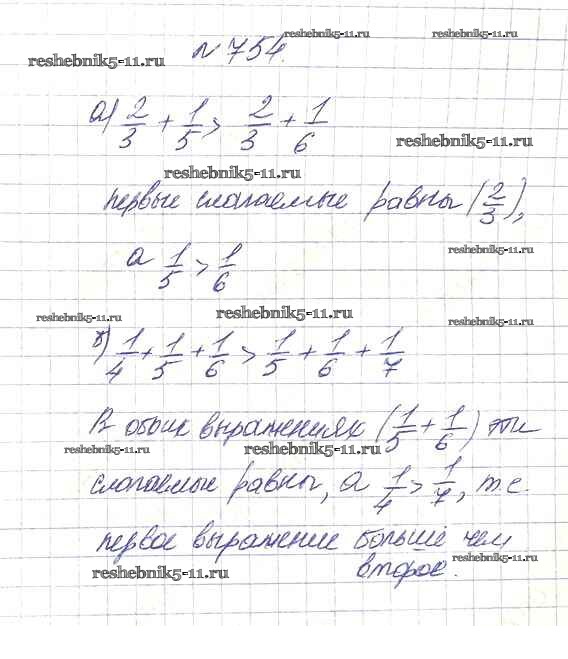 reshebnik5-11.ru reshebnik5-11.ru
reshebnik5-11.ru №754.
а) 2/3 + 1/5 > 2/3 + 1/6
reshebnik5-11.ru
reshebnik5-11.ru
первые слагаемые равны (2/3),
reshebnik5-11.ru
а 1/5 > 1/6
reshebnik5-11.ru
reshebnik5-11.ru reshebnik5-11.ru
б) 1/4 + 1/5 + 1/6 > 1/5 + 1/6 + 1/7
В обоих выражениях (1/5 + 1/6) эти
reshebnik5-11.ru reshebnik5-11.ru
слагаемые равны, а 1/4 > 1/7, т.е.
первое выражение больше чем
reshebnik5-11.ru
второе.
reshebnik5-11.ru